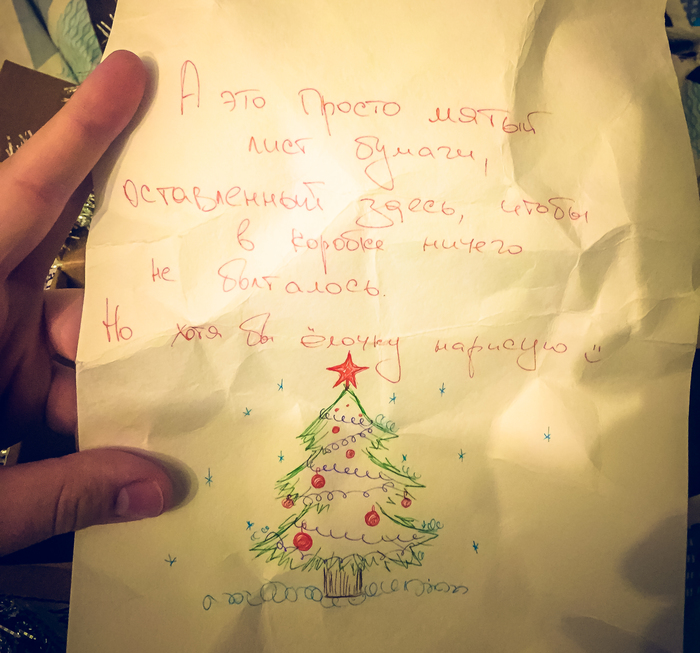 А это просто мятый
лист бумаги,
оставленный здесь, чтобы
в коробке ничего
не болталось.
Но хотя бы ёлочку нарисую :)